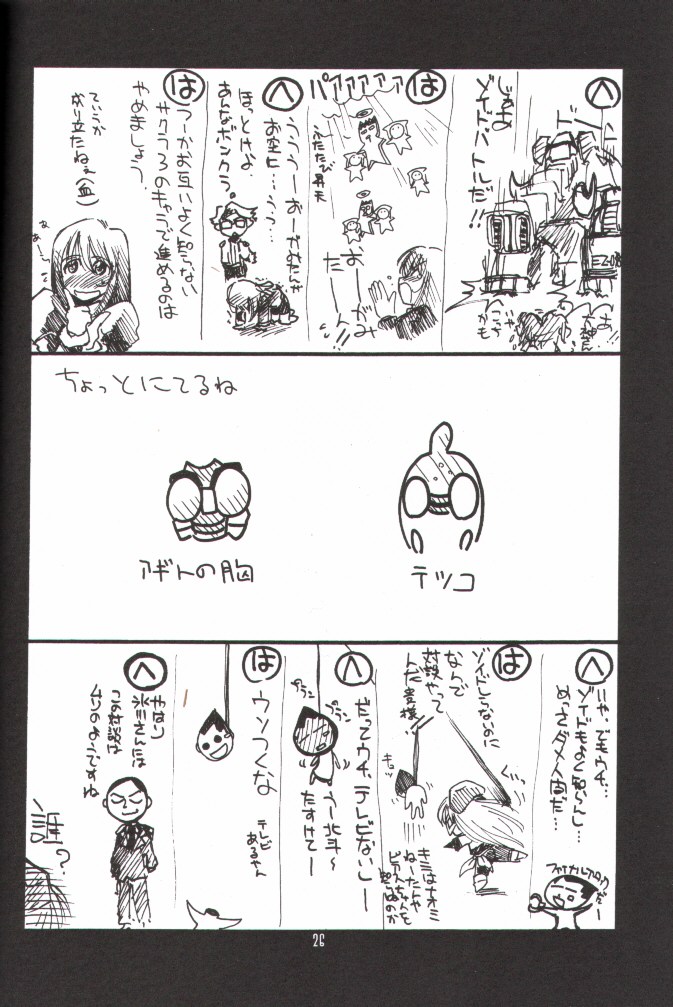 へ
じゃあ
ゾイドバトルだ!!
は
パアアアアア
ふたたび昇天
おー
たーーがみ
へ
うううーおーがみたんが
お空に…うっ…
ほっとけよ
あんなボンクラ。
は
うーかお互いよく知らない
サクラ3のキャラで進めるのは
やめましょう。
ていうか
成り立たねぇ(血)
ちょっとにてるね
アギトの胸
テツコ
へ
いや、でもウチ…
ゾイドもよく知らんし…
めっさダメ人間だ…
は
ゾイドしらないのに
なんで
対談やって
んだ貴様!!
キミはナオミ
ねーたんや
ビラたんちゃんを
知らないのか
へ
プラン
プラン
だってウチ、テレビないしー
うー北斗〜
たすけてー
は
ウソつくな
テレビ
あるやん
へ
やはり
氷川さんには
この対談は
ムリのようですね
誰?
26